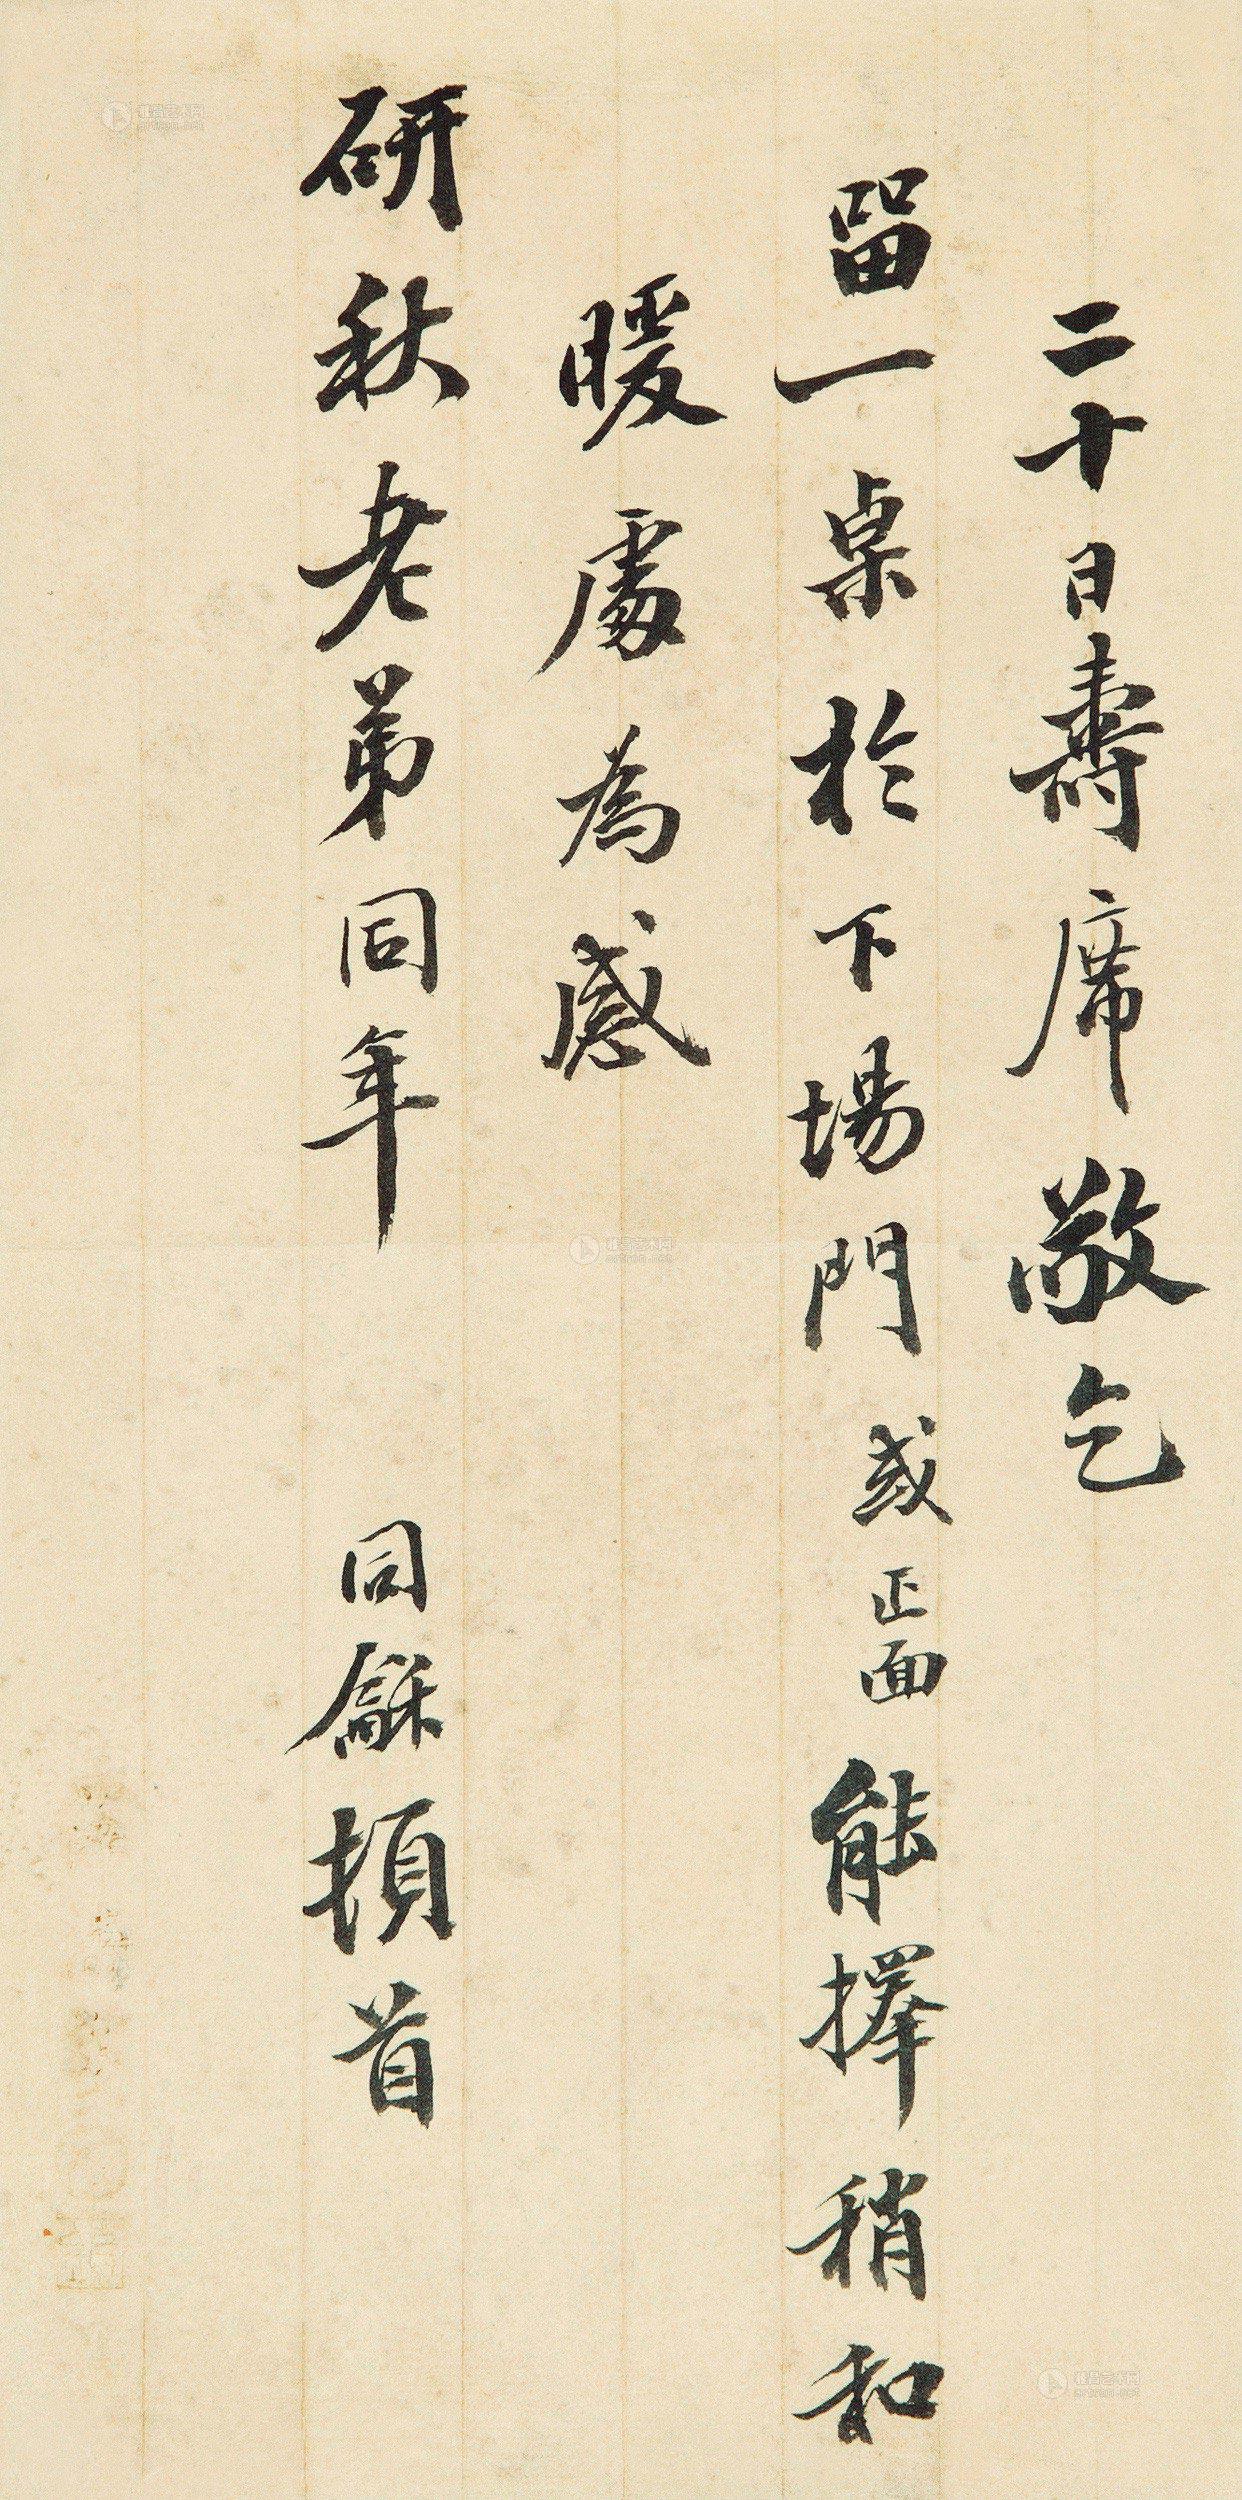 二十日壽席敬乞
留一桌於下場門或正面能擇稍和
暖處為感
研秋老弟同年 同龢頓首
雅昌艺术网
artron.net